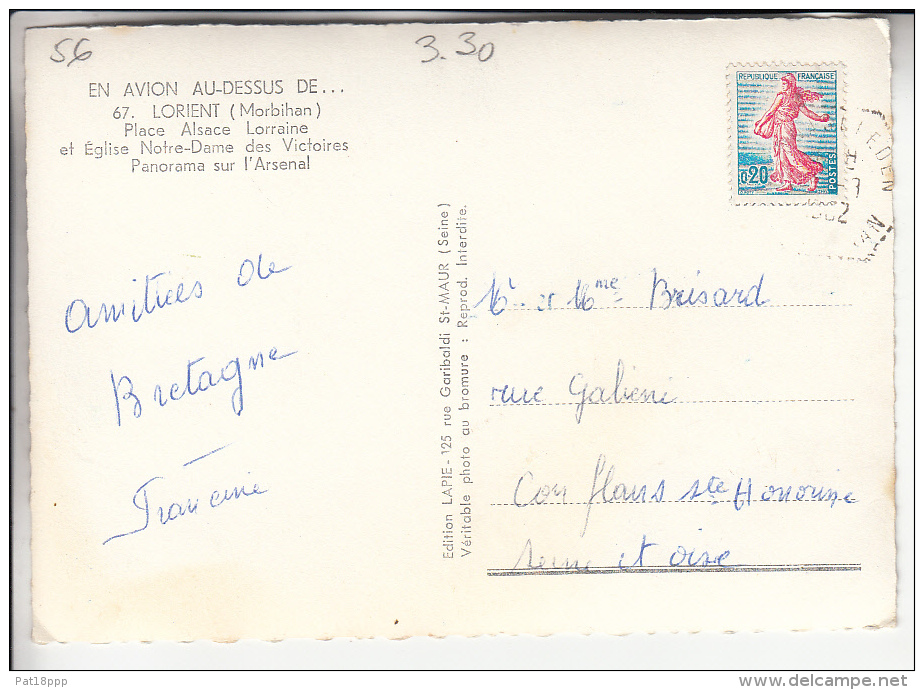 56
3.30
EN AVION AU-DESSUS DE...
67. LORIENT (Morbihan)
Place Alsace Lorraine
et Église Notre-Dame des Victoires
Panorama sur l'Arsenal
REPUBLIQUE FRANÇAISE
0,20
POSTES
Amitiées de
Bretagne
Francine
Edition LAPIE - 125 rue Garibaldi St-MAUR (Seine)
Véritable photo au bromure : Reprod. Interdite.
Mr et Mme Brisard
rue Galieni
Conflans ste Honorine
Seine et oise
Pat18ppp
delcampe.net